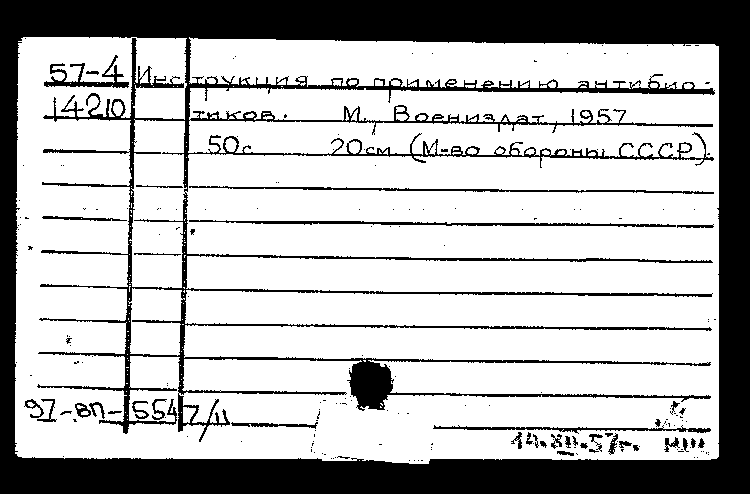 57-4 Инструкция по применению антибио-
14210 тиков. М., Воениздат, 1957
50с 20см (М-во обороны СССР).
97-вп-5547/11
14.XII.57г.